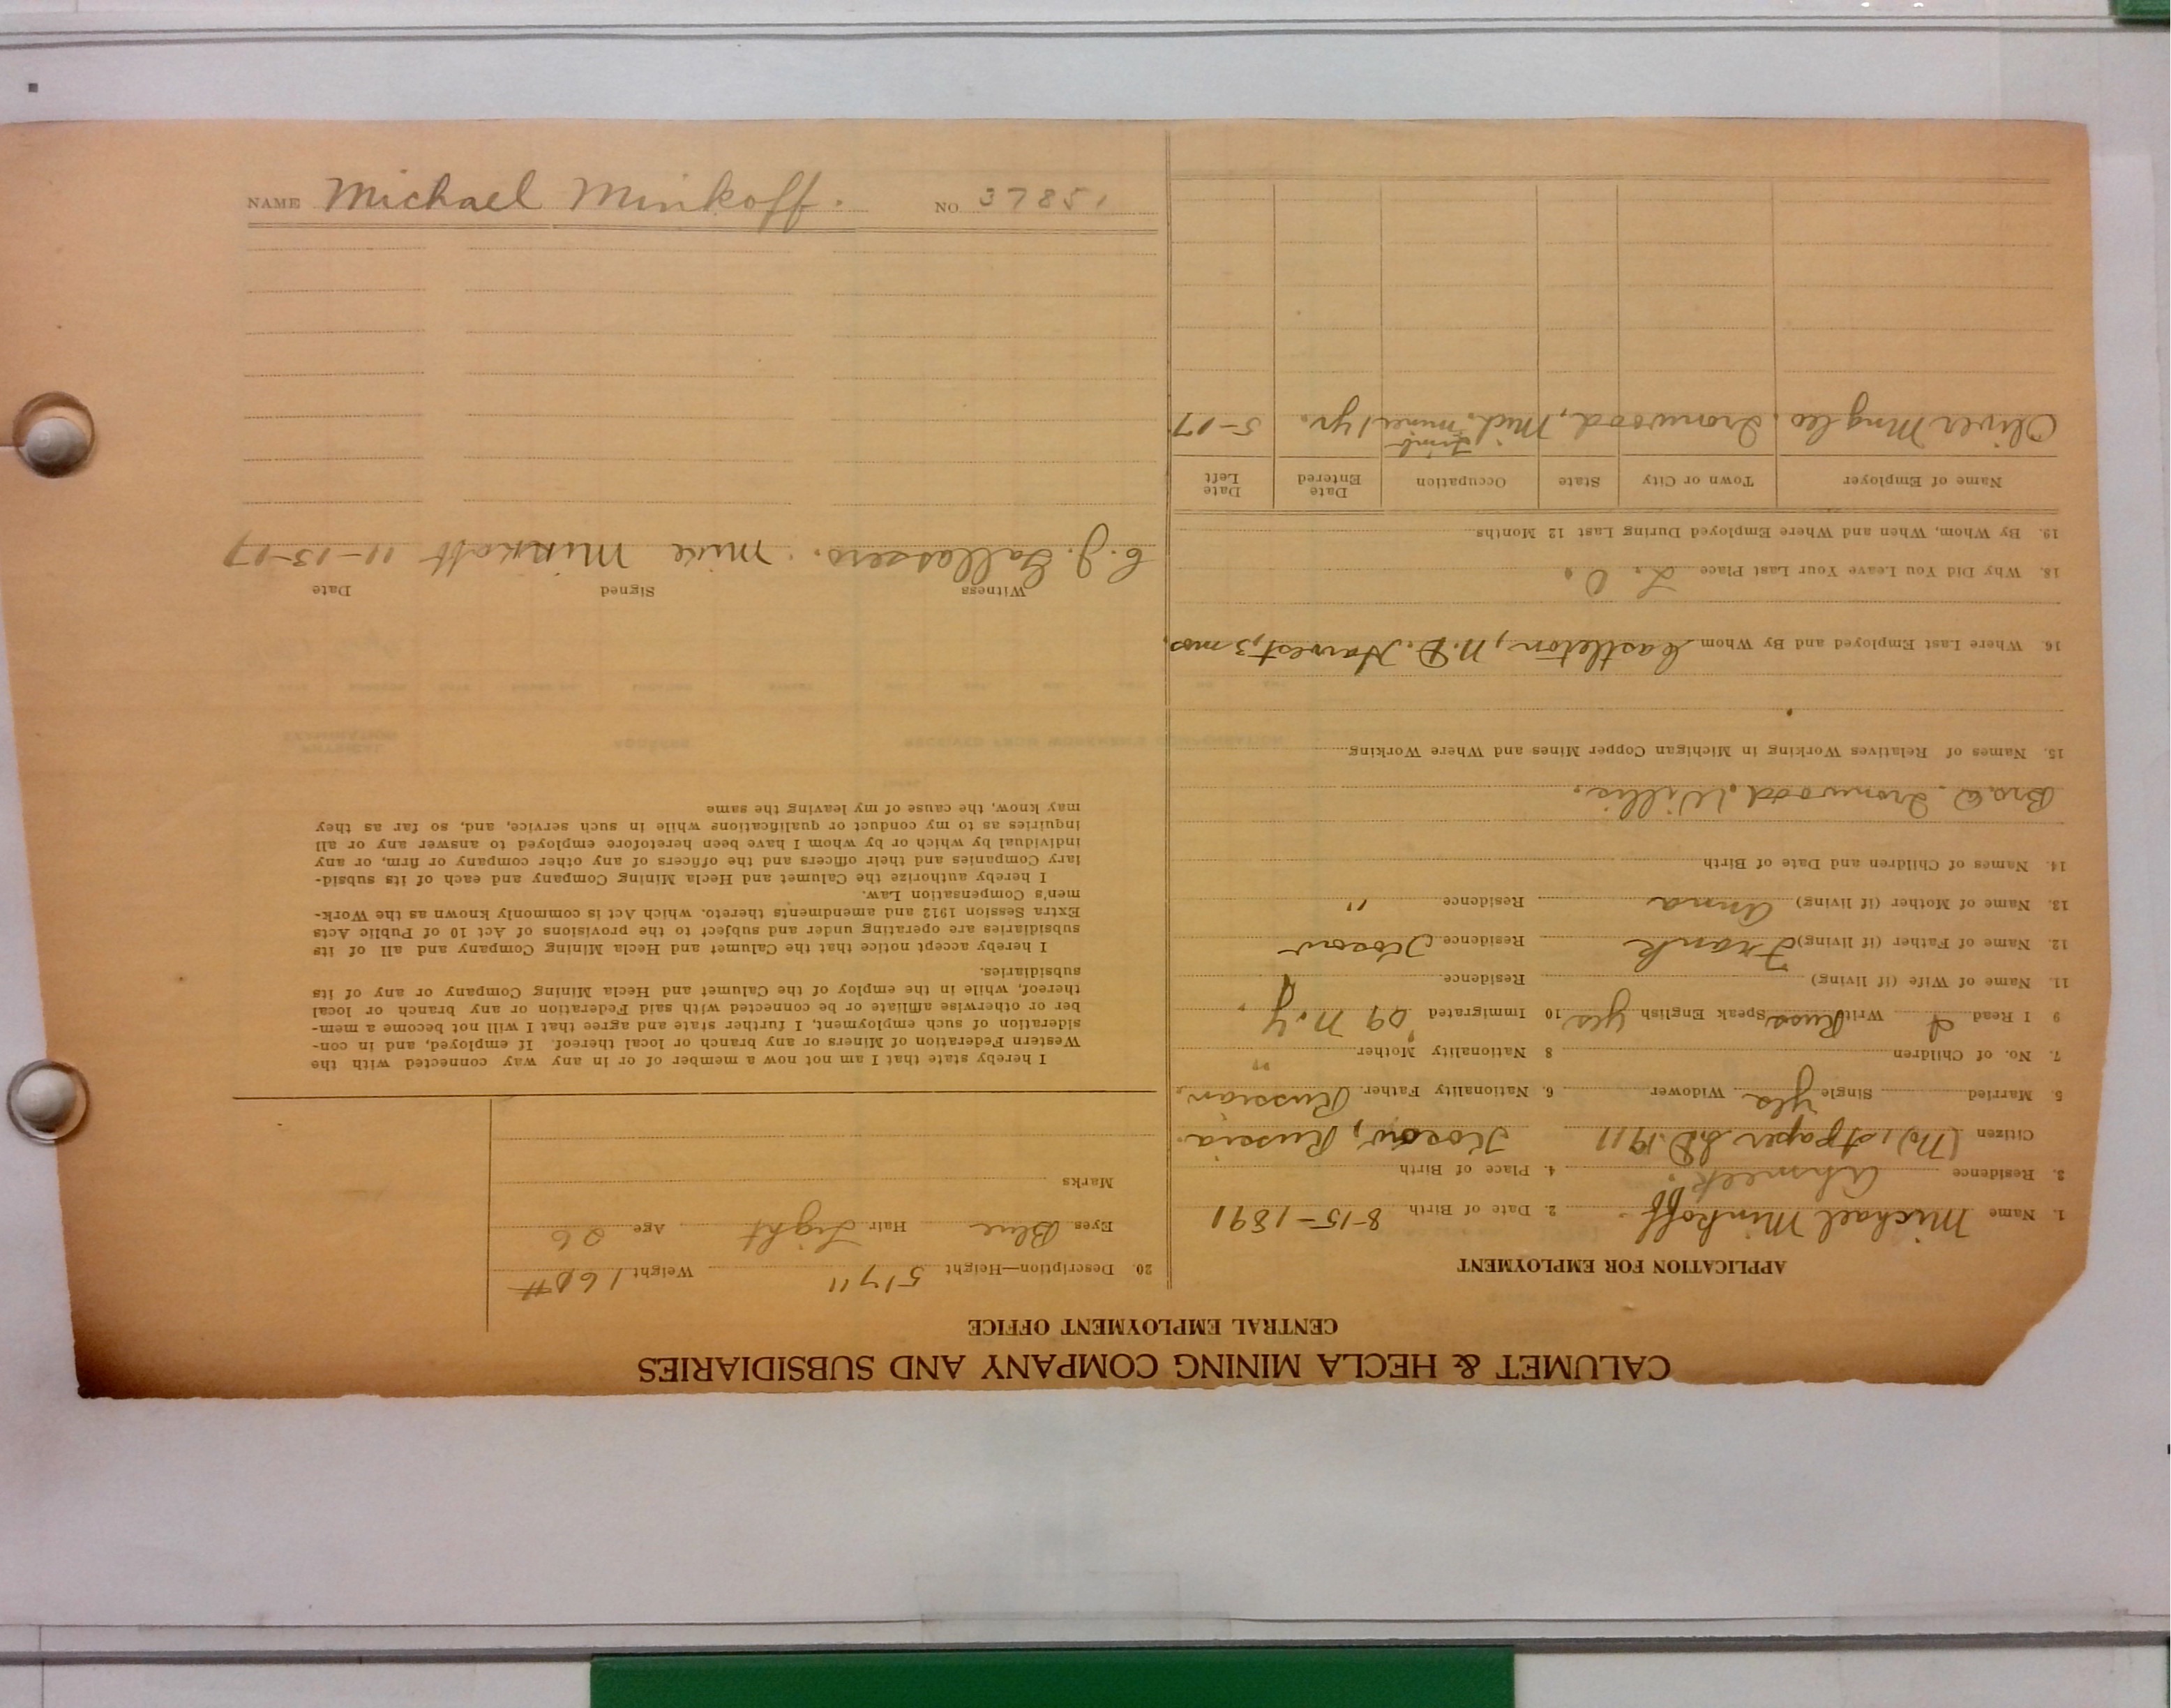 NAME Michael Minkoff. NO. 37851
CALUMET & HECLA MINING COMPANY AND SUBSIDIARIES
CENTRAL EMPLOYMENT OFFICE
APPLICATION FOR EMPLOYMENT
1. Name Michael Minkoff 2. Date of Birth 8-15-1891
3. Residence Ahmeek. 4. Place of Birth
Citizen (No) 1st paper 1911 Kosow, Russia.
5. Married Single yes Widower 6. Nationality Father Russian.
7. No. of Children 8 Nationality Mother "
9 I Read & Write Russ Speak English yes 10 Immigrated '09 N.Y.
11. Name of Wife (if living) Residence
12. Name of Father (if living) Frank Residence Kosow
13. Name of Mother (if living) Anna Residence "
14. Names of Children and Date of Birth
Bro. Ironwood. Willis.
15. Names of Relatives Working in Michigan Copper Mines and Where Working
16. Where Last Employed and By Whom Castleton, N.D. Harvest, 3 mos.
18. Why Did You Leave Your Last Place L. O.
19. By Whom, When and Where Employed During Last 12 Months.
Name of Employer Town or City State Occupation Date Entered Date Left
Oliver Mng Co. Ironwood, Mich. Trimb miner 1 yr. 5-17
20. Description—Height 5'7" Weight 160#
Eyes Blue Hair Light Age 26
Marks
I hereby state that I am not now a member of or in any way connected with the
Western Federation of Miners or any branch or local thereof. If employed, and in con-
sideration of such employment, I further state and agree that I will not become a mem-
ber or otherwise affiliate or be connected with said Federation or any branch or local
thereof, while in the employ of the Calumet and Hecla Mining Company or any of its
subsidiaries.
I hereby accept notice that the Calumet and Hecla Mining Company and all of its
subsidiaries are operating under and subject to the provisions of Act 10 of Public Acts
Extra Session 1912 and amendments thereto. which Act is commonly known as the Work-
men's Compensation Law.
I hereby authorize the Calumet and Hecla Mining Company and each of its subsid-
iary Companies and their officers and the officers of any other company or firm, or any
individual by which or by whom I have been heretofore employed to answer any or all
inquiries as to my conduct or qualifications while in such service, and, so far as they
may know, the cause of my leaving the same
Witness Signed Date
C. J. Gallassero. Mike Minkoff 11-13-17